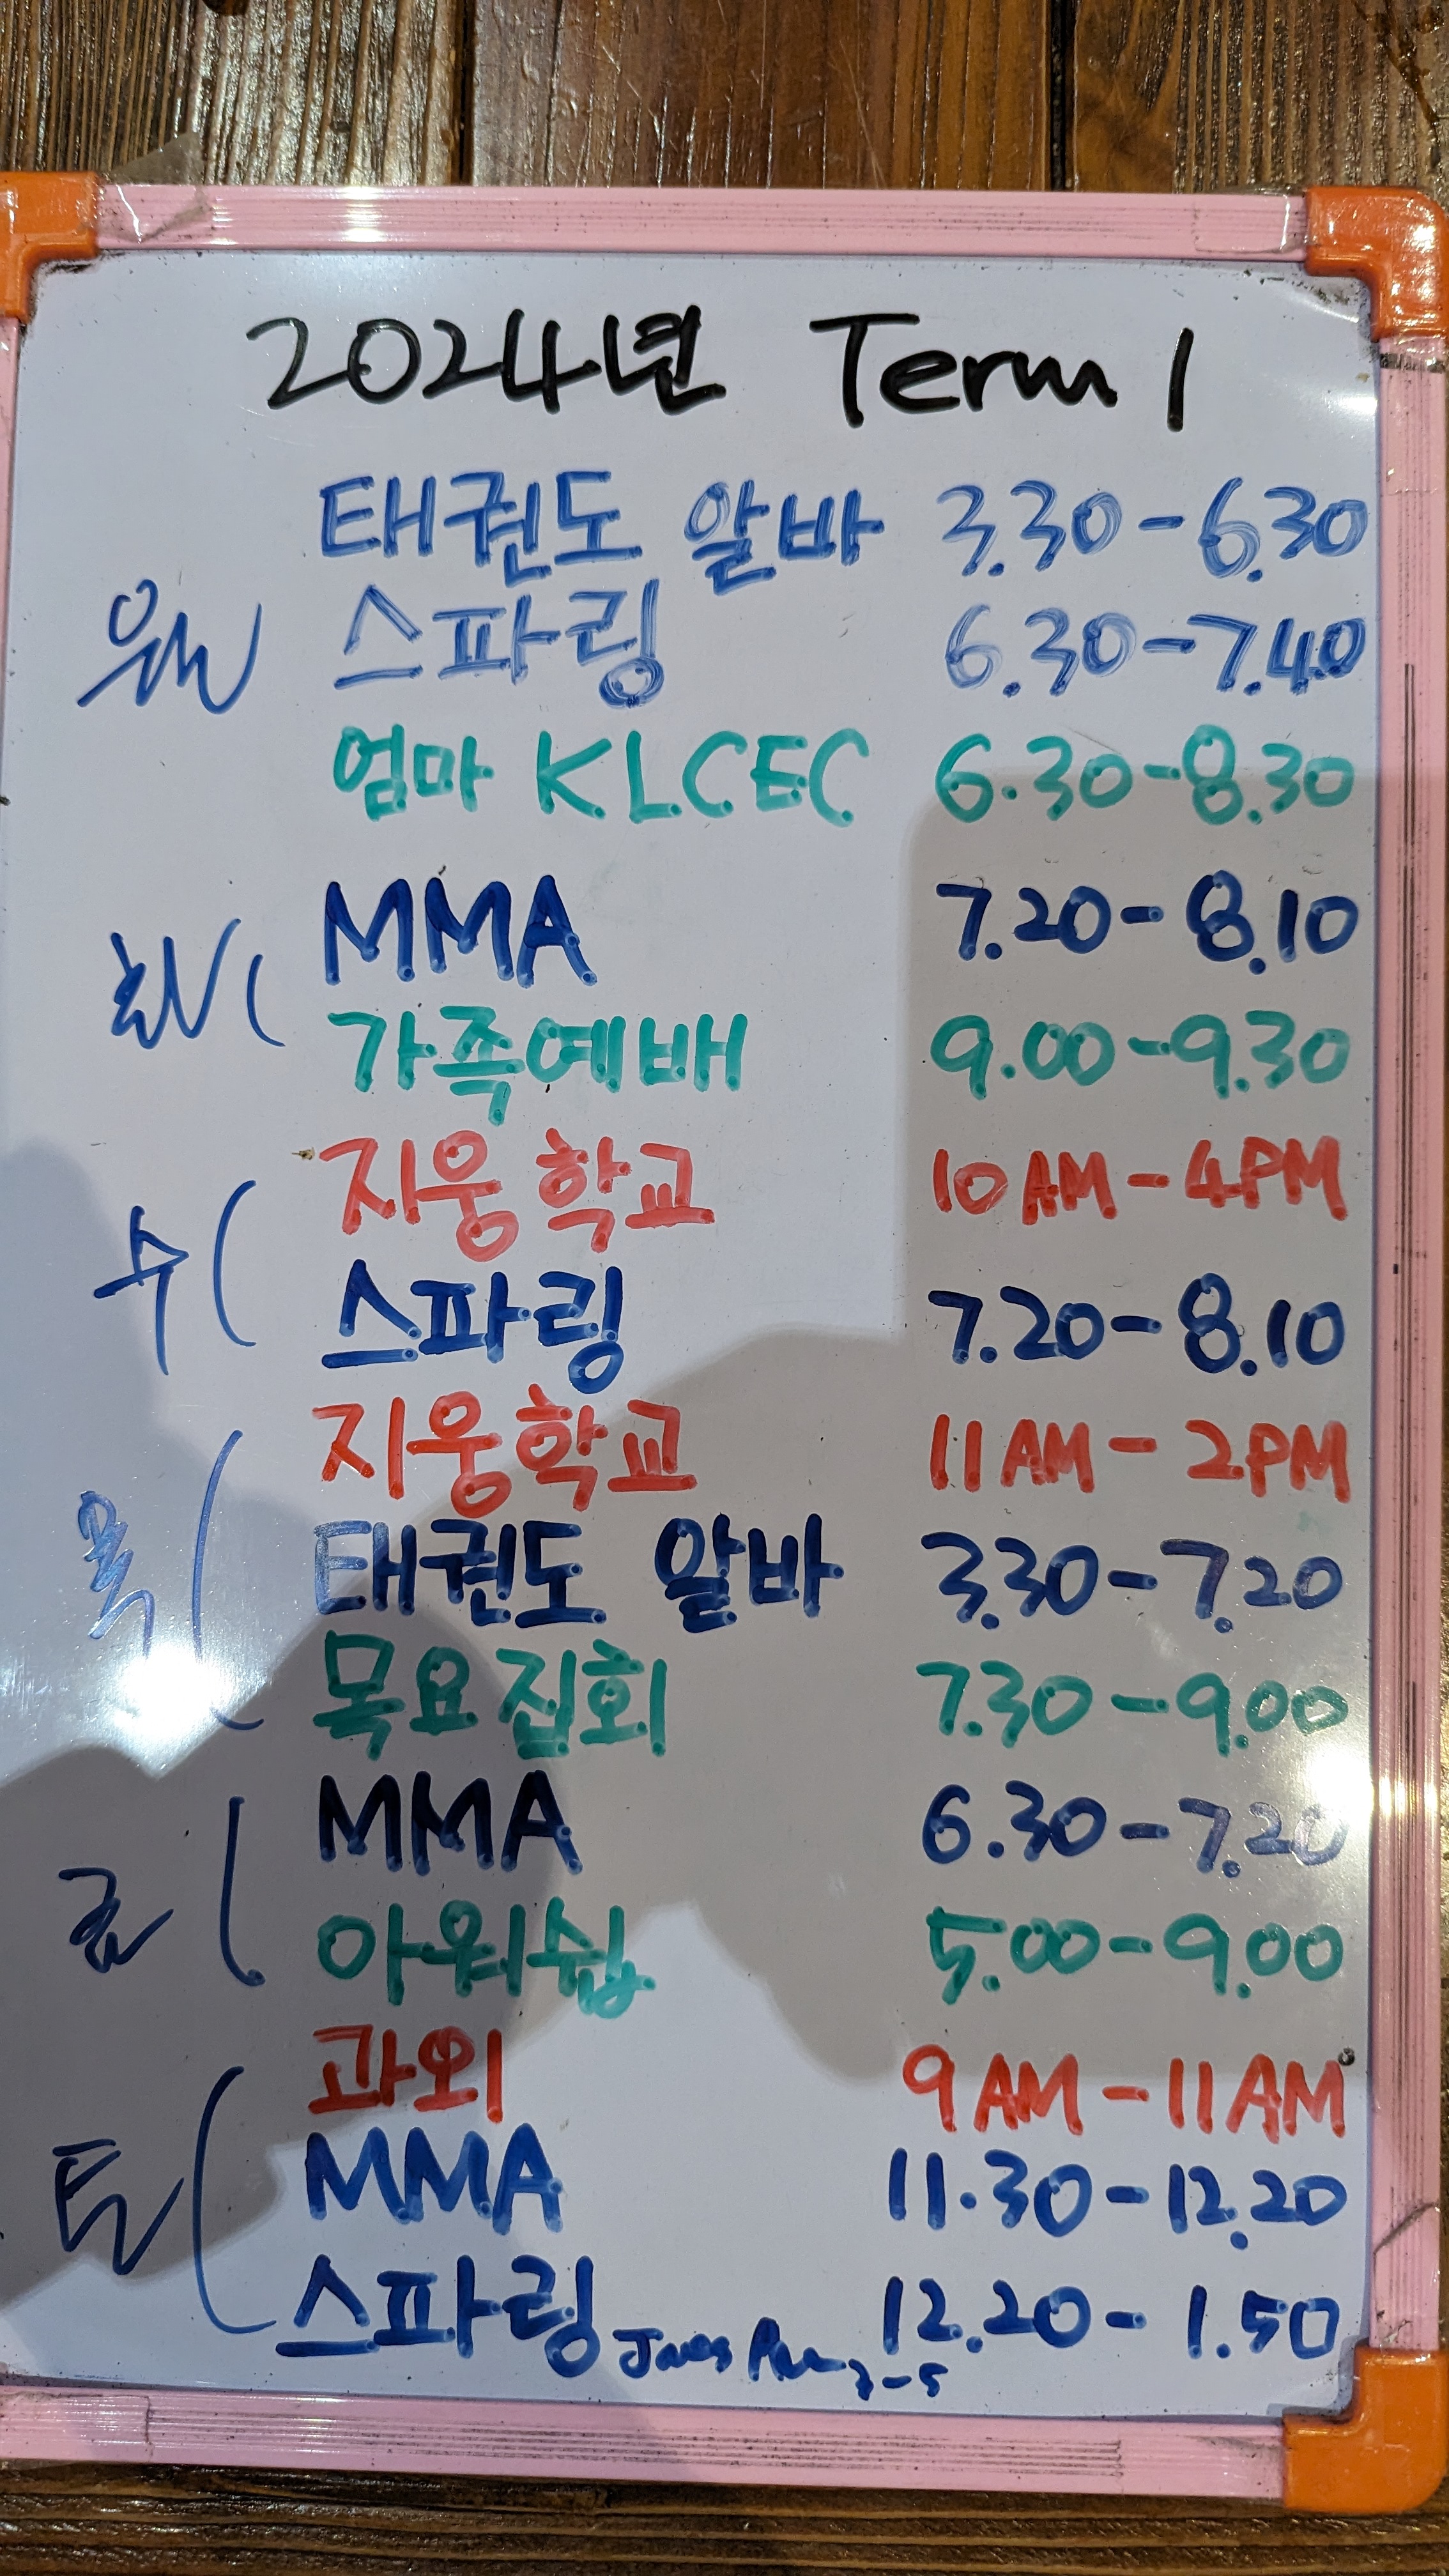 2024년 Term 1
태권도 알바 3.30-6.30
월 스파링 6.30-7.40
엄마 KLCEC 6.30-8.30
화 ( MMA 7.20-8.10
가족예배 9.00-9.30
지웅학교 10AM-4PM
수 ( 스파링 7.20-8.10
지웅학교 11AM-2PM
목 ( 태권도 알바 3.30-7.20
목요집회 7.30-9.00
MMA 6.30-7.20
금 ( 아워쉽 5.00-9.00
과외 9AM-11AM
토 ( MMA 11.30-12.20
스파링 12.20-1.50
3-5